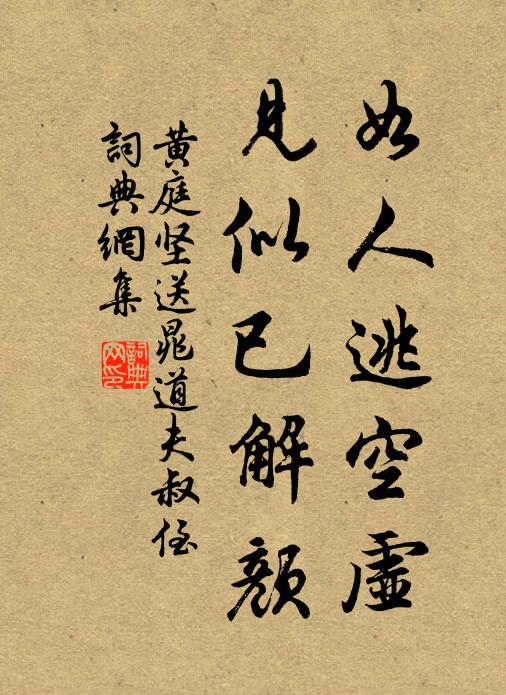 如人逃空虛
見似已解顏
黃庭坚送晁道夫叔侄
詞典網集
詞典网印